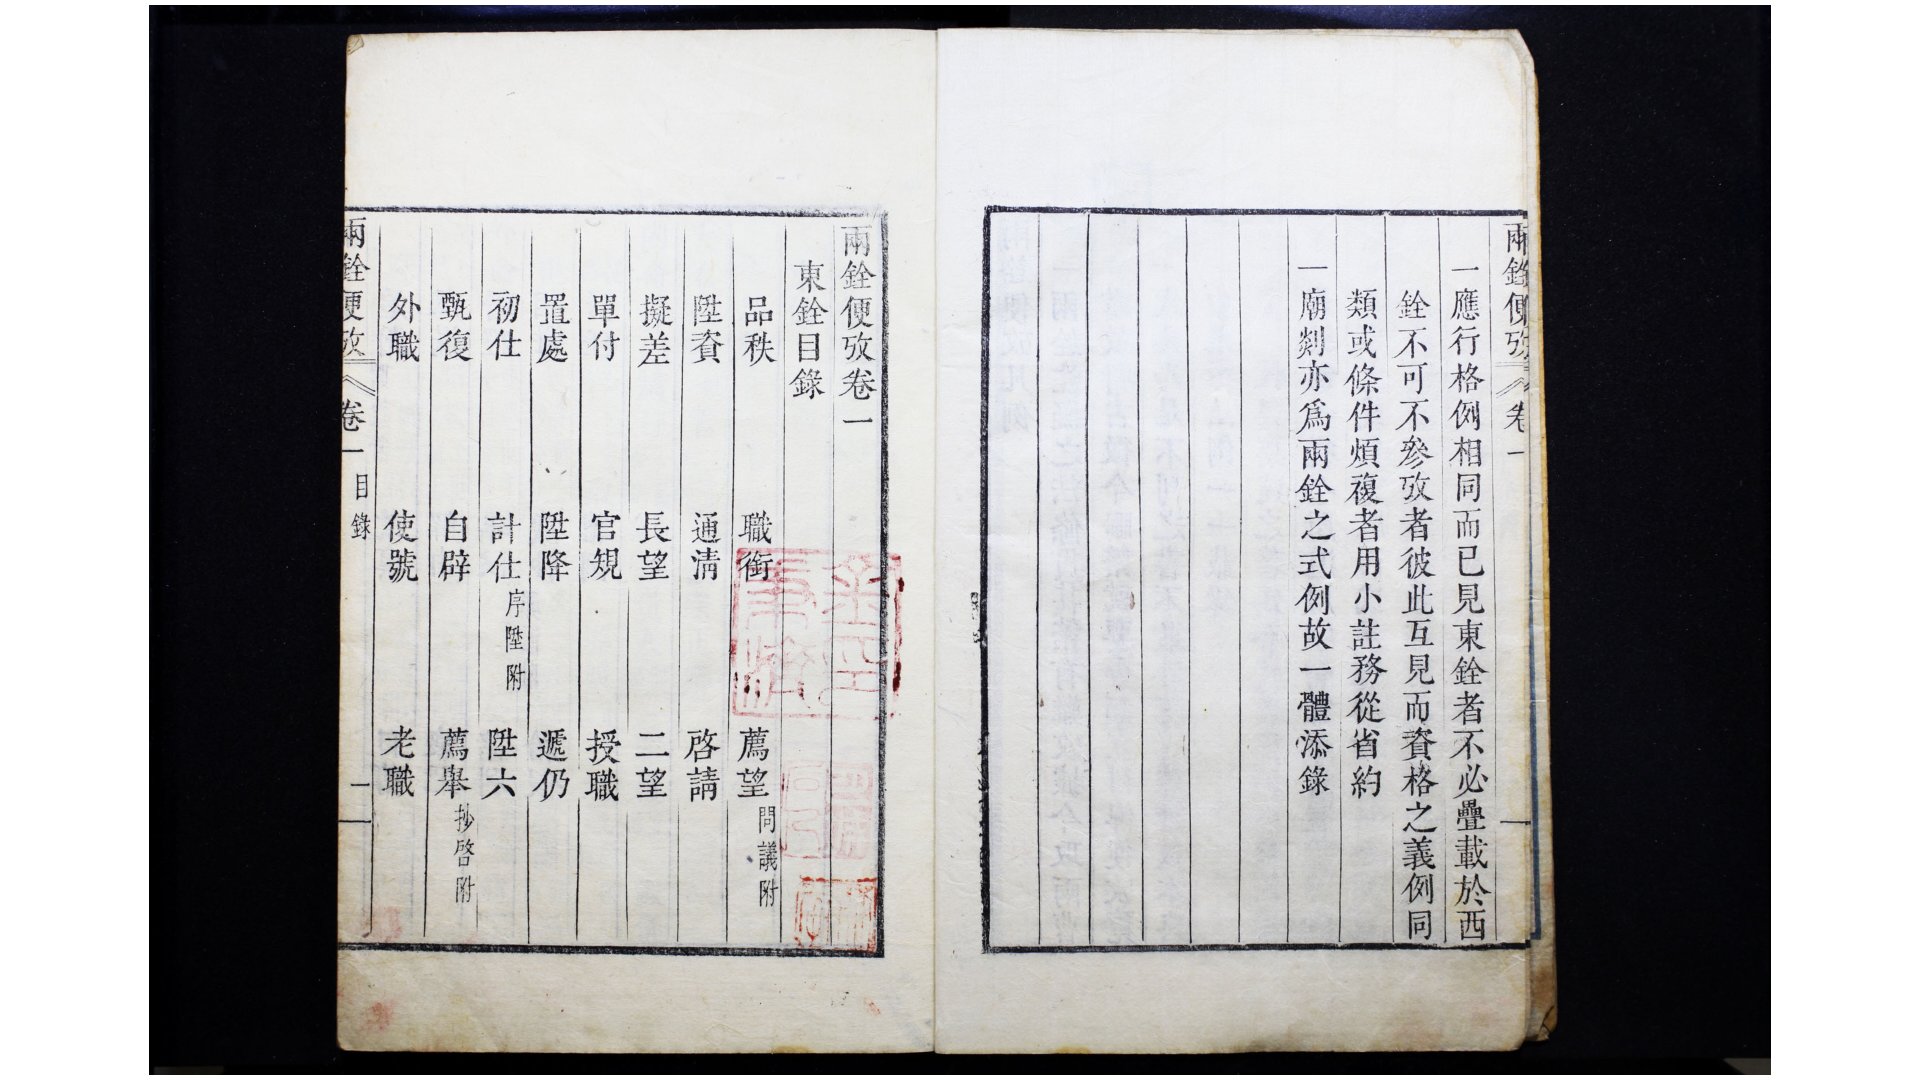 兩銓便攷 卷一 一
一應行格例相同而已見東銓者不必疊載於西
銓不可不參攷者彼此互見而資格之義例同
類或條件煩複者用小註務從省約
一廟剡亦爲兩銓之式例故一體添錄
兩銓便攷卷一
東銓目錄
品秩 職銜 薦望 問議附
陞資 通淸 啓請
擬差 長望 二望
單付 官規 授職
置處 陞降 遞仍
初仕 計仕 序陞附 陞六
甄復 自辟 薦擧 抄啓附
外職 使號 老職
兩銓便攷 卷一 目錄 一